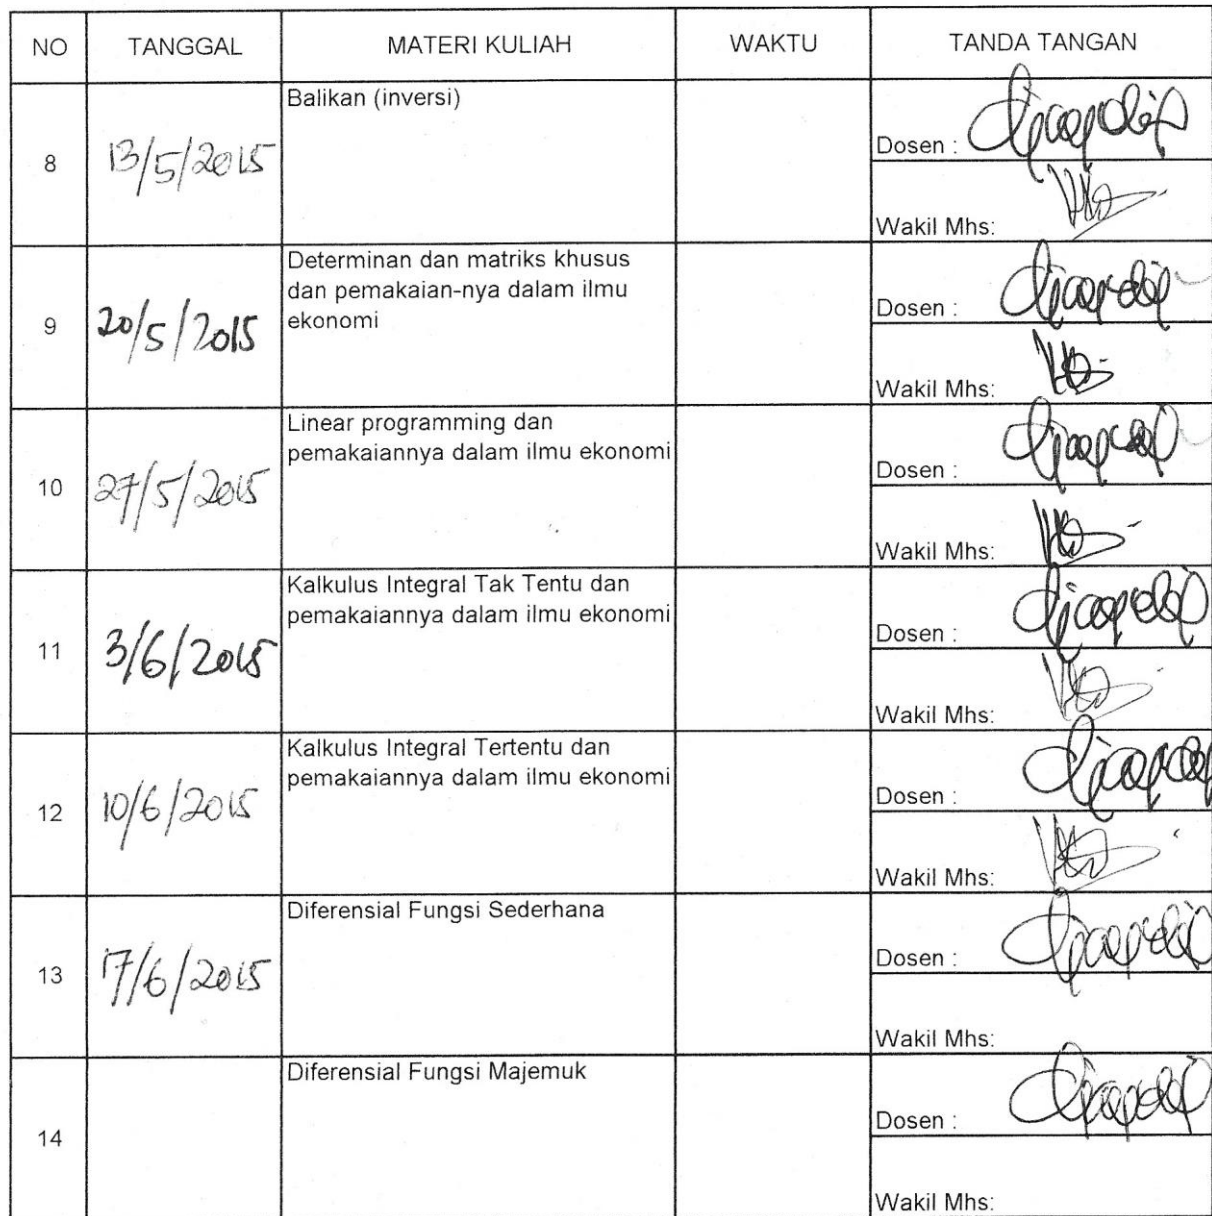 NO TANGGAL MATERI KULIAH WAKTU TANDA TANGAN
8 13/5/2015 Balikan (inversi)
Dosen :
Wakil Mhs:
9 20/5/2015 Determinan dan matriks khusus
dan pemakaian-nya dalam ilmu
ekonomi
Dosen :
Wakil Mhs:
10 27/5/2015 Linear programming dan
pemakaiannya dalam ilmu ekonomi
Dosen :
Wakil Mhs:
11 3/6/2015 Kalkulus Integral Tak Tentu dan
pemakaiannya dalam ilmu ekonomi
Dosen :
Wakil Mhs:
12 10/6/2015 Kalkulus Integral Tertentu dan
pemakaiannya dalam ilmu ekonomi
Dosen :
Wakil Mhs:
13 17/6/2015 Diferensial Fungsi Sederhana
Dosen :
Wakil Mhs:
14 Diferensial Fungsi Majemuk
Dosen :
Wakil Mhs: